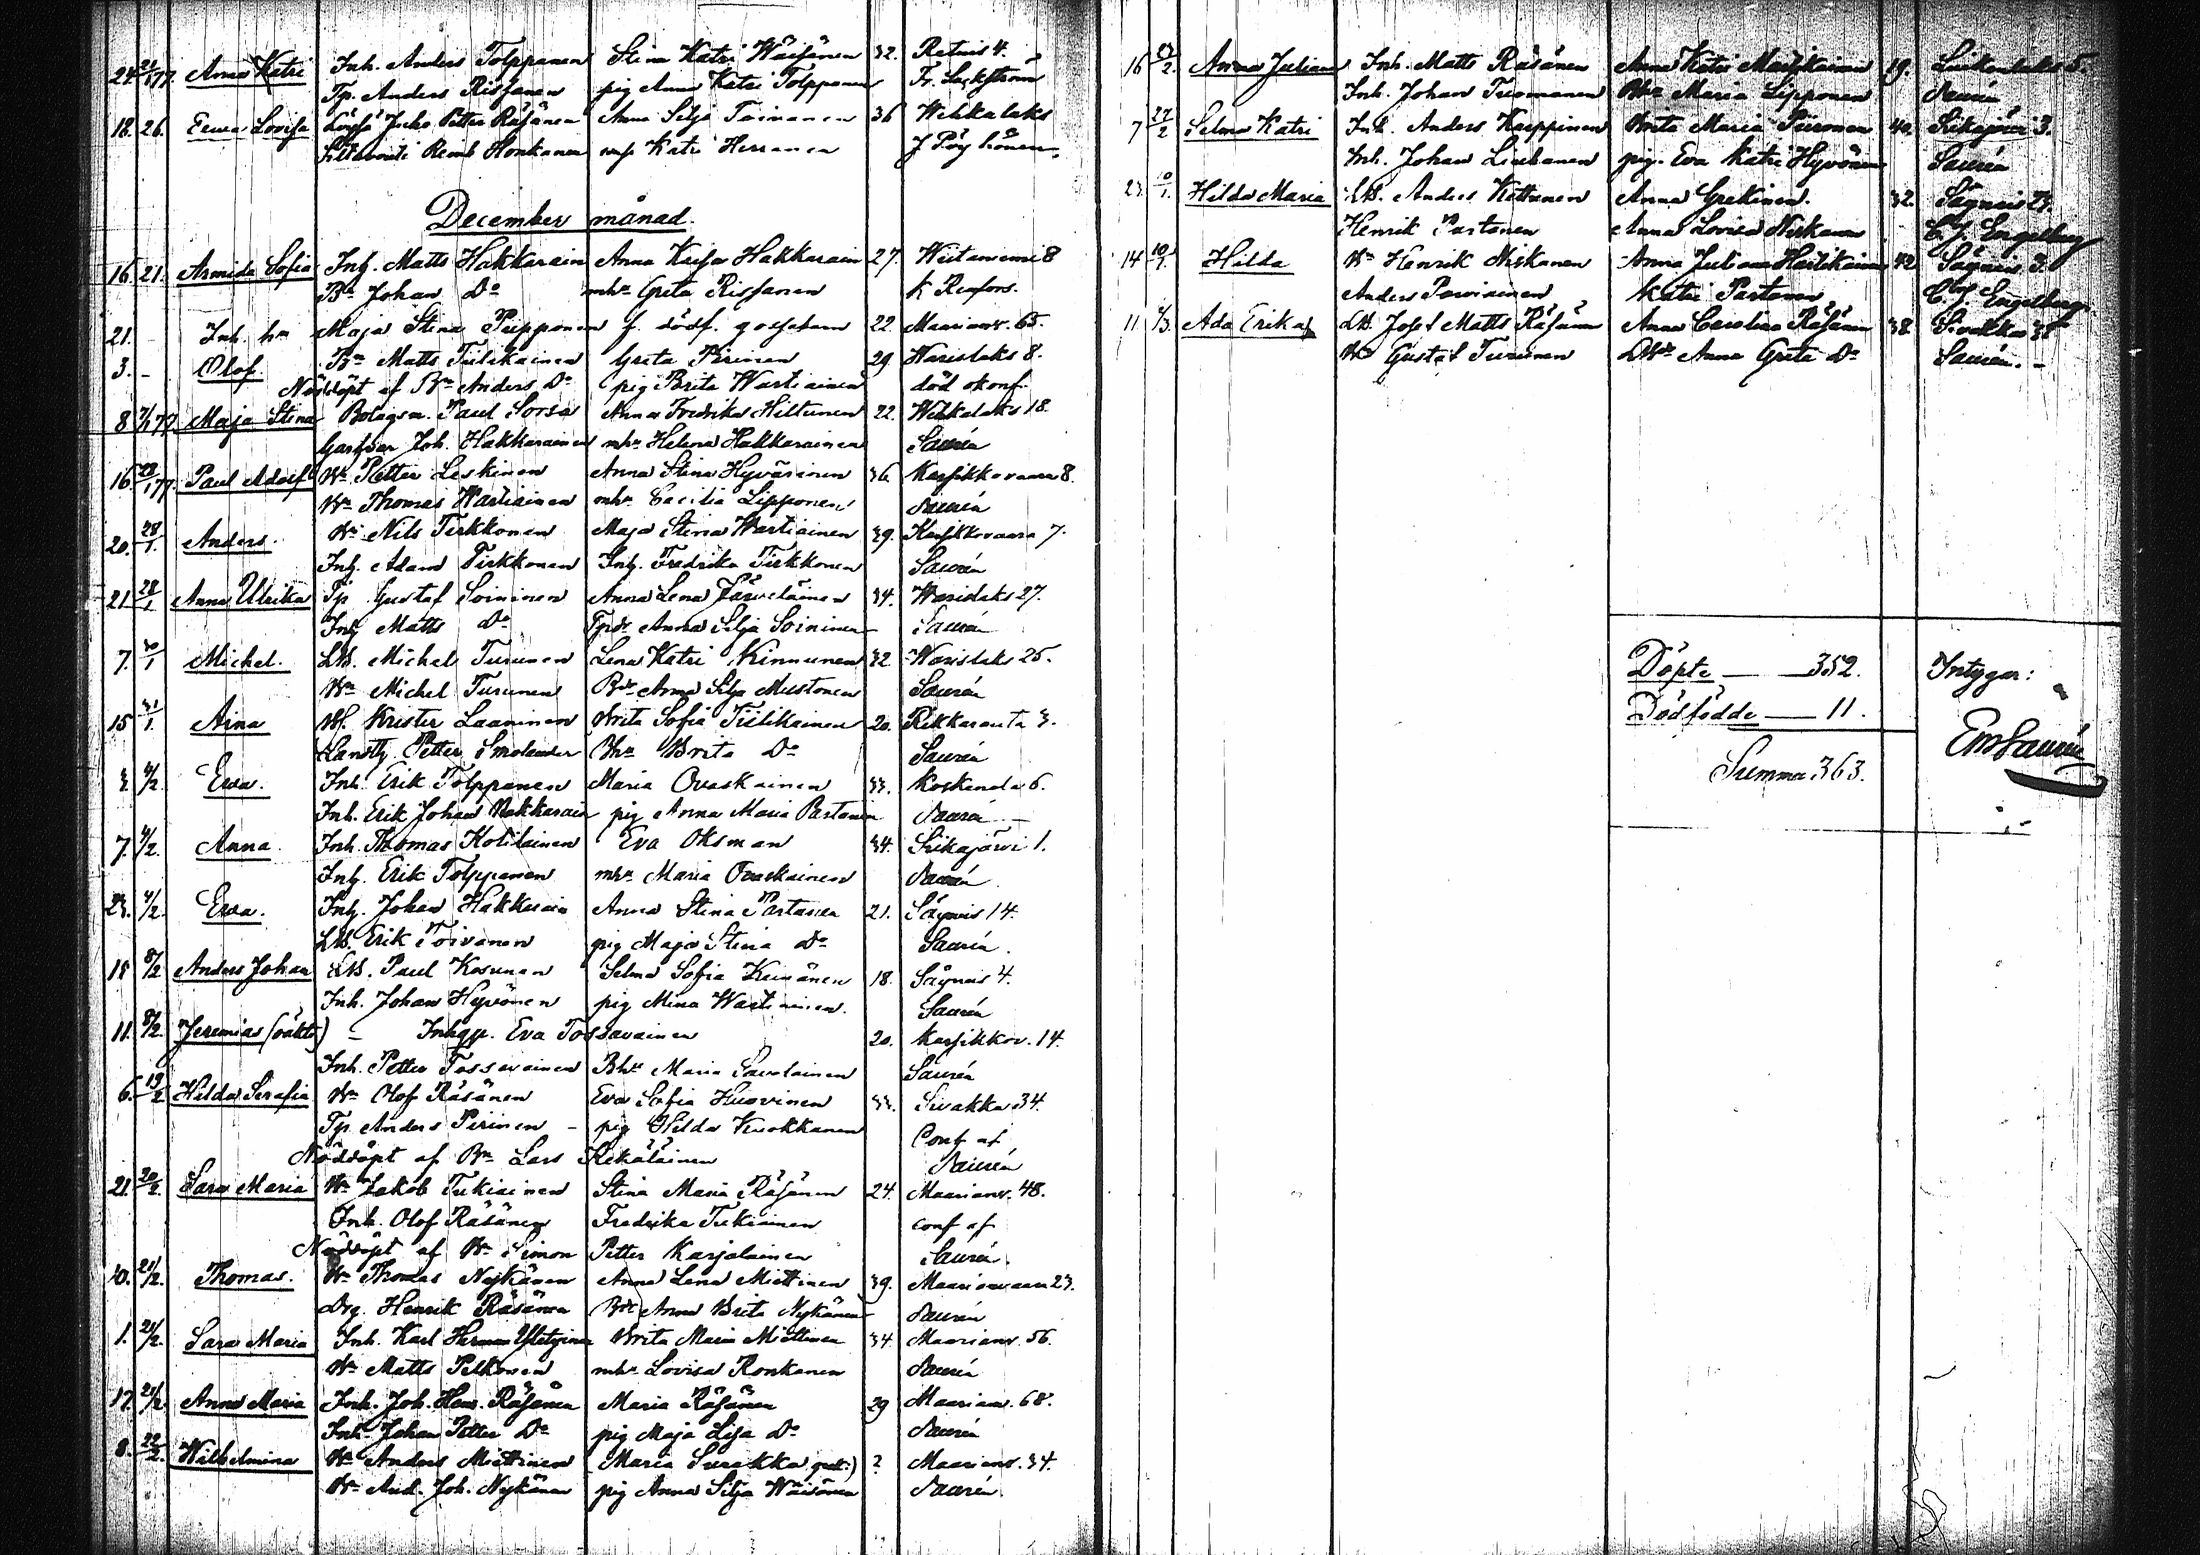 24 21/1 77. Anna Katri Inh. Anders Tolppanen Stina Katri Wäisänen 32. Retuis 4.
Tp. Anders Rissanen pig Anna Katri Tolppanen Fr. Lackström
18. 26. Lovisa Petter Räsänen Anna Silja Toivanen 36 Wehkalaks
Honkanen Katri Herranen J Pöyhönen
December månad.
16. 21. Armida Sofia Inh. Matts Hakkarain Anna Kaisa Hakkarain 27. Wiitaniemi 8
Bn Johan Do mhr Greta Rissanen K Renfors.
21. Inh. hu Maja Stina Piipponen f. dödf. gossebarn 22. Maarianv. 65.
3. – Olof. Bn Matts Tiilikainen Greta Pirinen 29. Warislaks 8.
Nöddöpt af Bn Anders Do pig Brita Wartiainen död okonf.
8 7/1 77 Maja Stina Bolagsm. Paul Sorsa Anna Fredrika Hiltunen 22. Wehkalaks 18.
Joh. Hakkarainen mhr Helena Hakkarainen Saurén
16. 28/1 77. Paul Adolf Wn Petter Leskinen Anna Stina Hyvärinen 36. Karsikkovaara 8.
Wn Thomas Wartiainen mhr Cecilia Lipponen Saurén
20. 28/1. Anders. Wn Nils Tirkkonen Maja Stina Wartiainen 39. Karsikkovaara 7.
Inh. Adam Tirkkonen Inh. Fredrika Tirkkonen Saurén
21. 28/1 Anna Ulrika Tp Gustaf Soininen Anna Lena Järveläinen 34. Warislaks 27.
Inh Matts Do Anna Silja Soininen Saurén
7. 30/1 Michel. LB. Michel Turunen Lena Katri Kinnunen 32 Warislaks 25.
Wn Michel Turunen Anna Silja Mustonen Saurén
15 31/1. Aina Krister Laaninen Brita Sofia Tiilikainen 20. Rikkaranta 3.
Petter Smolander Bhr Brita Do Saurén
3 4/2. Eva. Inh. Erik Tolppanen Maria Ovaskainen 33. Koskenala 6.
Inh. Erik Johan Hakkarain pig Anna Maria Partanen Saurén –
7. 4/2. Anna. Inh. Thomas Kotilainen Eva Oksman 34. Siikajärvi 1.
Inh. Erik Tolppanen mhr Maria Ovaskainen Saurén
23. 4/2. Eva. Inh. Johan Hakkarain Anna Stina Partanen 21. Sägnis 14.
LB. Erik Toivanen pig Maja Stina Do Saurén.
18 8/2 Anders Johan LB. Paul Kosunen Selma Sofia Keinänen 18. Sägnis 4.
Inh. Johan Hyvönen pig Mina Wartiainen. Saurén
11. 8/2. Jeremias (oäkta) – Inhqv. Eva Tossavainen 20. Karsikkov. 14.
Inh. Petter Tossavainen Bhr Maria Savolainen Saurén
6. 19/2 Hilda Serafia Wn Olof Räsänen Eva Sofia Huovinen 33. Sivakka 34.
Tp. Anders Pirinen – pig Hilda Kuokkanen Conf af
Nöddöpt af Bn Lars Saurén
21. 20/2. Sara Maria Wn Jakob Tukiainen Stina Maria Räsänen 24. Maarianv. 48.
Inh. Olof Räsänen Fredrika Tukiainen conf af
Nöddöpt af Wn Simon Petter Karjalainen Saurén.
10. 21/2. Thomas. Wn Thomas Nykänen Anna Lena Miettinen 39. Maarianvaara 23.
Drg. Henrik Räsänen Anna Brita Nykänen Saurén
1. 21/2. Sara Maria Inh. Karl Herman Brita Maria Miettinen 34 Maarianv. 56.
Wn Matts Pelkonen mhr Lovisa Ronkanen Saurén
17. 21/2. Anna Maria Inh. Joh. Henr. Räsänen Maria Räsänen 29 Maarianv. 68.
Inh. Johan Petter Do pig Maja Lisa Do Saurén
8. 22/2. Wilhelmina Wn Anders Miettinen Maria Surakka ? Maarianv. 34.
Wn And. Joh. Nykänen pig Anna Silja Wäisänen Saurén.
16 Anna Juliana Inh. Matts Räsänen Anna Katri 19. 5.
Inh. Johan Tuomainen Maria Lipponen Saurén
7 27/2 Selma Katri Inh. Anders Karppinen Brita Maria Piironen 40. Siikajärvi 3.
Inh. Johan pig. Eva Katri Hyvönen Saurén
Hilda Maria LB. Anders Kettunen Anna 32. Sägnis 23.
Henrik Partanen Anna Lovisa Niskanen C. J. Engelberg
14 Hilda Wn Henrik Niskanen Anna Juliana Hartikainen 42 Sägnis 3.
Anders Parviainen Katri Partanen C. J. Engelberg
11 Ada Erika LB. Josef Matts Räsänen Anna Carolina Räsänen 38 Sivakka
Wn Gustaf Turunen Anna Greta Do Saurén. –
Döpte — 352.
Dödfödde — 11.
Summa 363.
Intygar:
Em Saurén